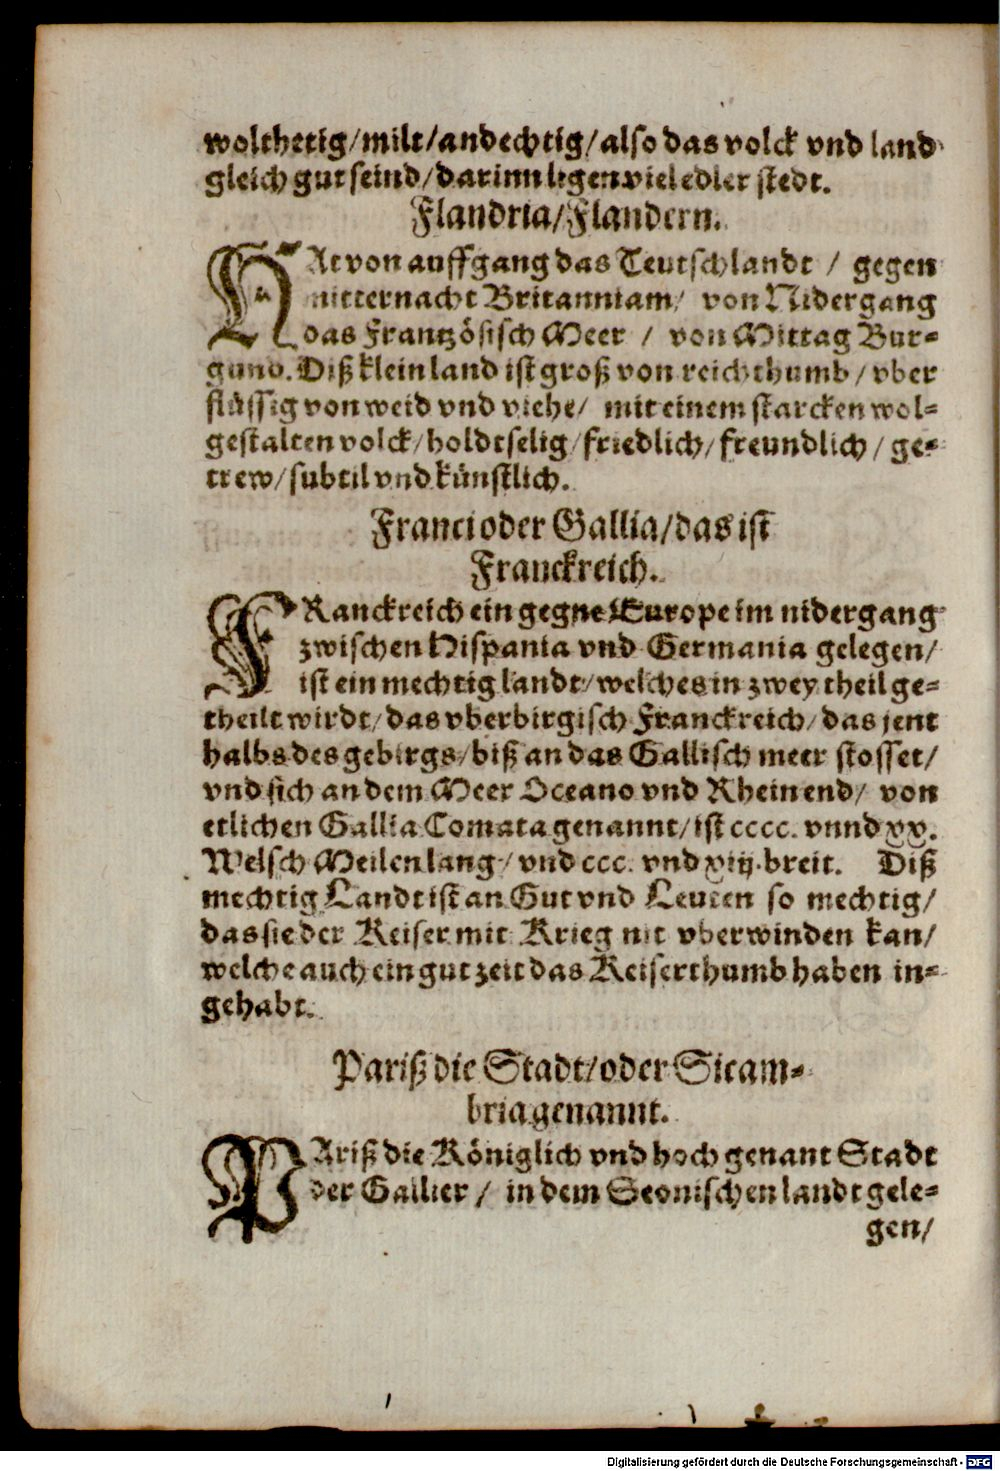 wolthetig/milt/andechtig/also das volck vnd land
gleich gut seind/darinn ligen viel edler stedt.
Flandria/Flandern.
HAt von auffgang das Teutschlandt / gegen
mitternacht Britanniam/ von Nidergang
das Frantzösisch Meer / von Mittag Bur-
gund. Diß klein land ist groß von reichthumb/vber
flüssig von weid vnd viehe/ mit einem starcken wol-
gestalten volck/holdtselig/friedlich/freundlich/ge-
trew/subtil vnd künstlich.
Franci oder Gallia/das ist
Franckreich.
FRanckreich ein gegne Europe im nidergang
zwischen Hispania vnd Germania gelegen/
ist ein mechtig landt/welches in zwey theil ge-
theilt wirdt/das vberbirgisch Franckreich/das jent
halbs des gebirgs/biß an das Gallisch meer stosset/
vnd sich an dem Meer Oceano vnd Rhein end/ von
etlichen Gallia Comata genannt/ist cccc. vnnd xx.
Welsch Meilen lang/vnd ccc. vnd xiij. breit. Diß
mechtig Landt ist an Gut vnd Leuten so mechtig/
das sie der Keiser mit Krieg nit vberwinden kan/
welche auch ein gut zeit das Keiserthumb haben in-
gehabt.
Pariß die Stadt/oder Sicam-
bria genannt.
PAriß die Königlich vnd hoch genant Stadt
der Gallier / in dem Seonischen landt gele-
gen/
Digitalisierung gefördert durch die Deutsche Forschungsgemeinschaft - DFG